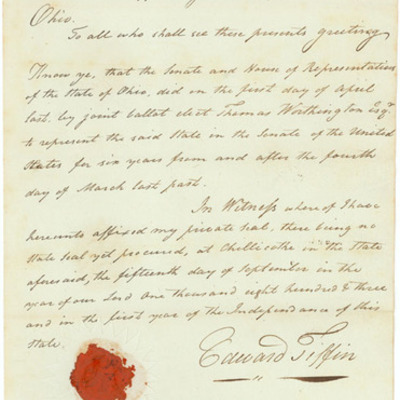 Ohio.
To all who shall see these presents greeting
Know ye, that the Senate and House of Representatives
of the State of Ohio, did on the first day of April
last. by joint ballot elect Thomas Worthington Esqr.
to represent the said State in the Senate of the United
States for six years from and after the fourth
day of March last past.
In Witness where of I have
hereunto affixed my private Seal, there being no
State Seal yet procured, at Chillicothe in the State
aforesaid, the fifteenth day of September in the
year of our Lord One thousand eight hundred & three
and in the first year of the Independance of this
State.
Edward Tiffin